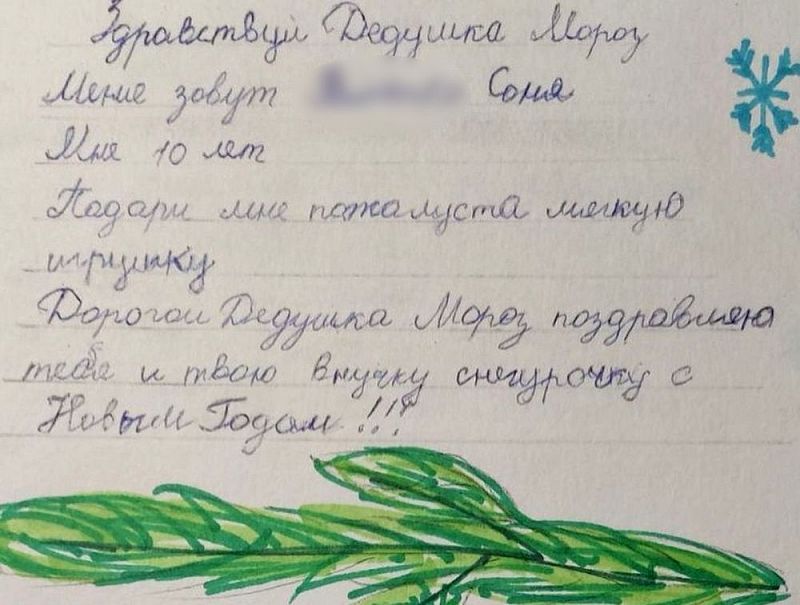 Здравствуй Дедушка Мороз
Меня зовут Соня
Мне 10 лет
Подари мне пожалуста мягкую
игрушку
Дорогой Дедушка Мороз поздравляю
тебя и твою внучку снегурочку с
Новым Годам!!!